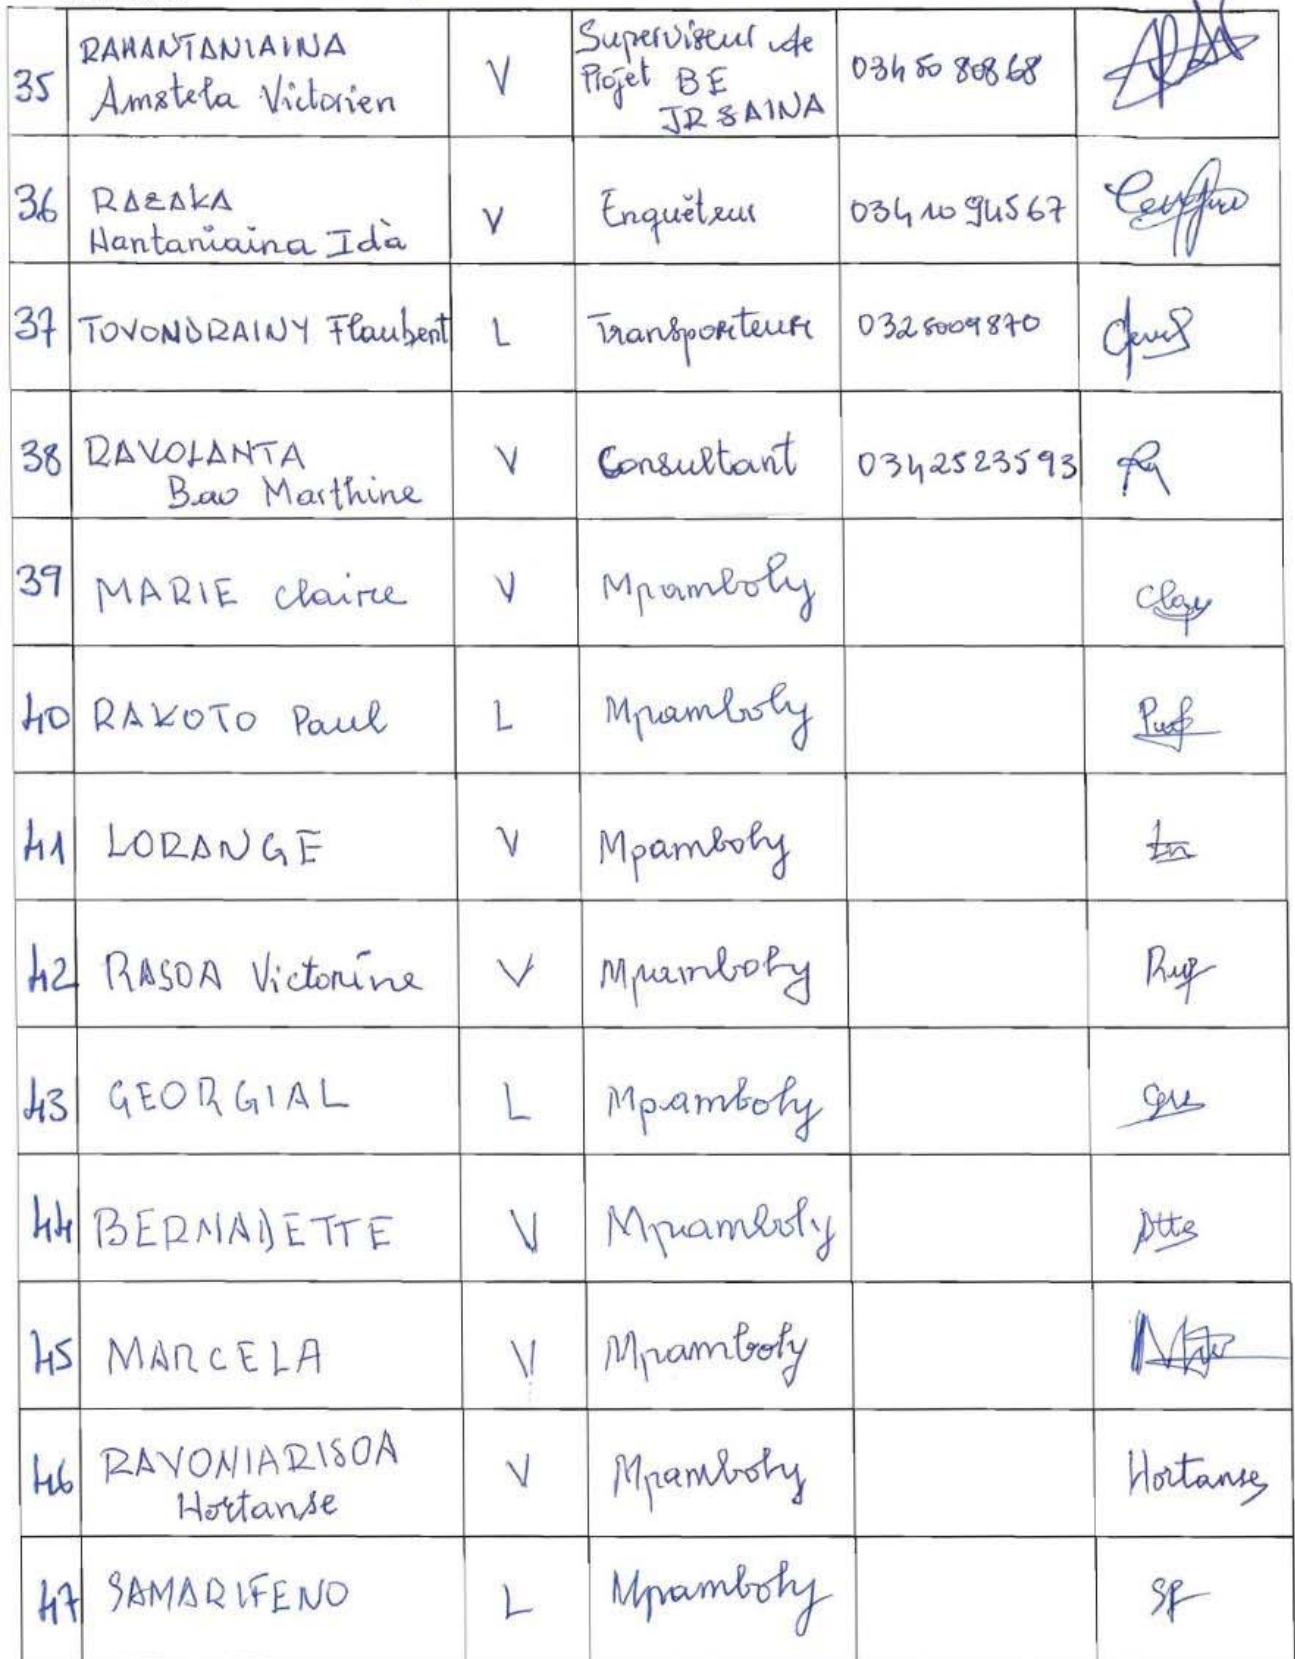 35 RAHANTANIAINA Amstela Victorien V Superviseur de Projet BE JRSAINA 034 50 808 68
36 RAZAKA Hantaniaina Ida V Enquêteur 034 10 945 67
37 TOVONDRAINY Flaubent L Transporteur 032 5009870
38 RAVOLANTA Bao Marthine V Consultant 0342523593
39 MARIE Claire V Mpamboly Clay
40 RAKOTO Paul L Mpamboly
41 LORANGE V Mpamboly
42 RASOA Victorine V Mpamboly
43 GEORGIAL L Mpamboly
44 BERNADETTE V Mpamboly
45 MARCELA V Mpamboly
46 RAVONIARISOA Hortanse V Mpamboly Hortanse
47 SAMARIFENO L Mpamboly SF